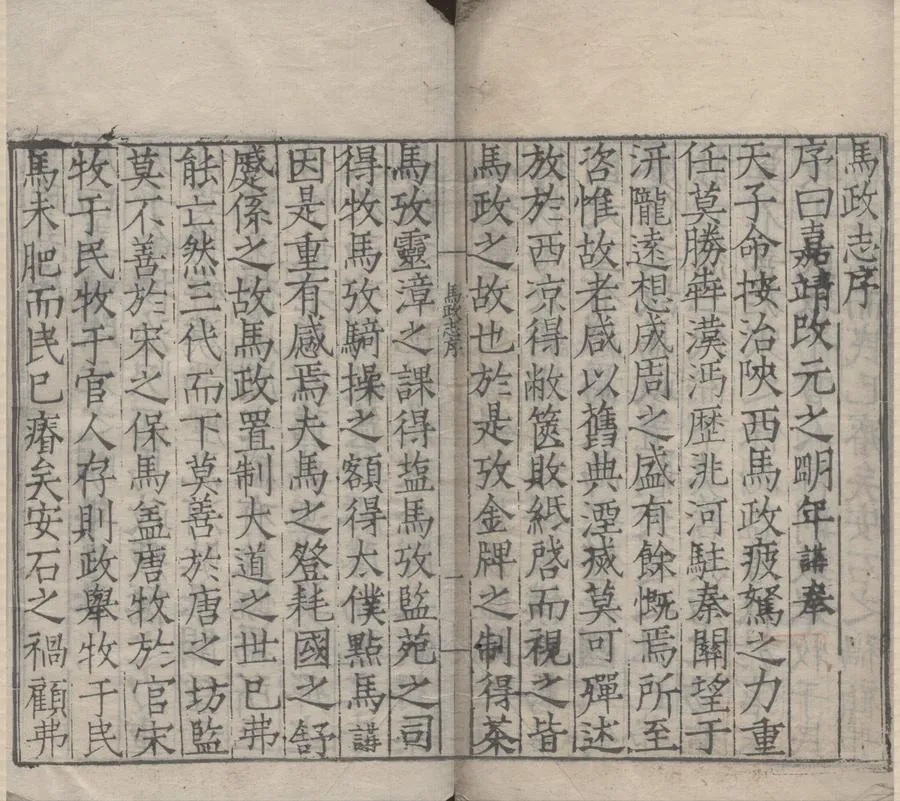 馬政志序
序曰嘉靖改元之明年講奉
天子命按治陜西馬政疲駑之力重
任莫勝犇漢沔歷洮河駐秦關望于
汧隴遠想成周之盛有餘慨焉所至
咨惟故老咸以舊典湮滅莫可殫述
放於西凉得敝篋敗紙啓而視之皆
馬政之故也於是攷金牌之制得茶
馬政志序 一
馬攷靈漳之課得塩馬攷監苑之司
得牧馬攷騎操之額得太僕點馬講
因是重有感焉夫馬之登耗國之舒
蹙係之故馬政置制大道之世已弗
能亡然三代而下莫善於唐之坊監
莫不善於宋之保馬盖唐牧於官宋
牧于民牧于官人存則政舉牧于民
馬未肥而民已瘠矣安石之禍顧弗